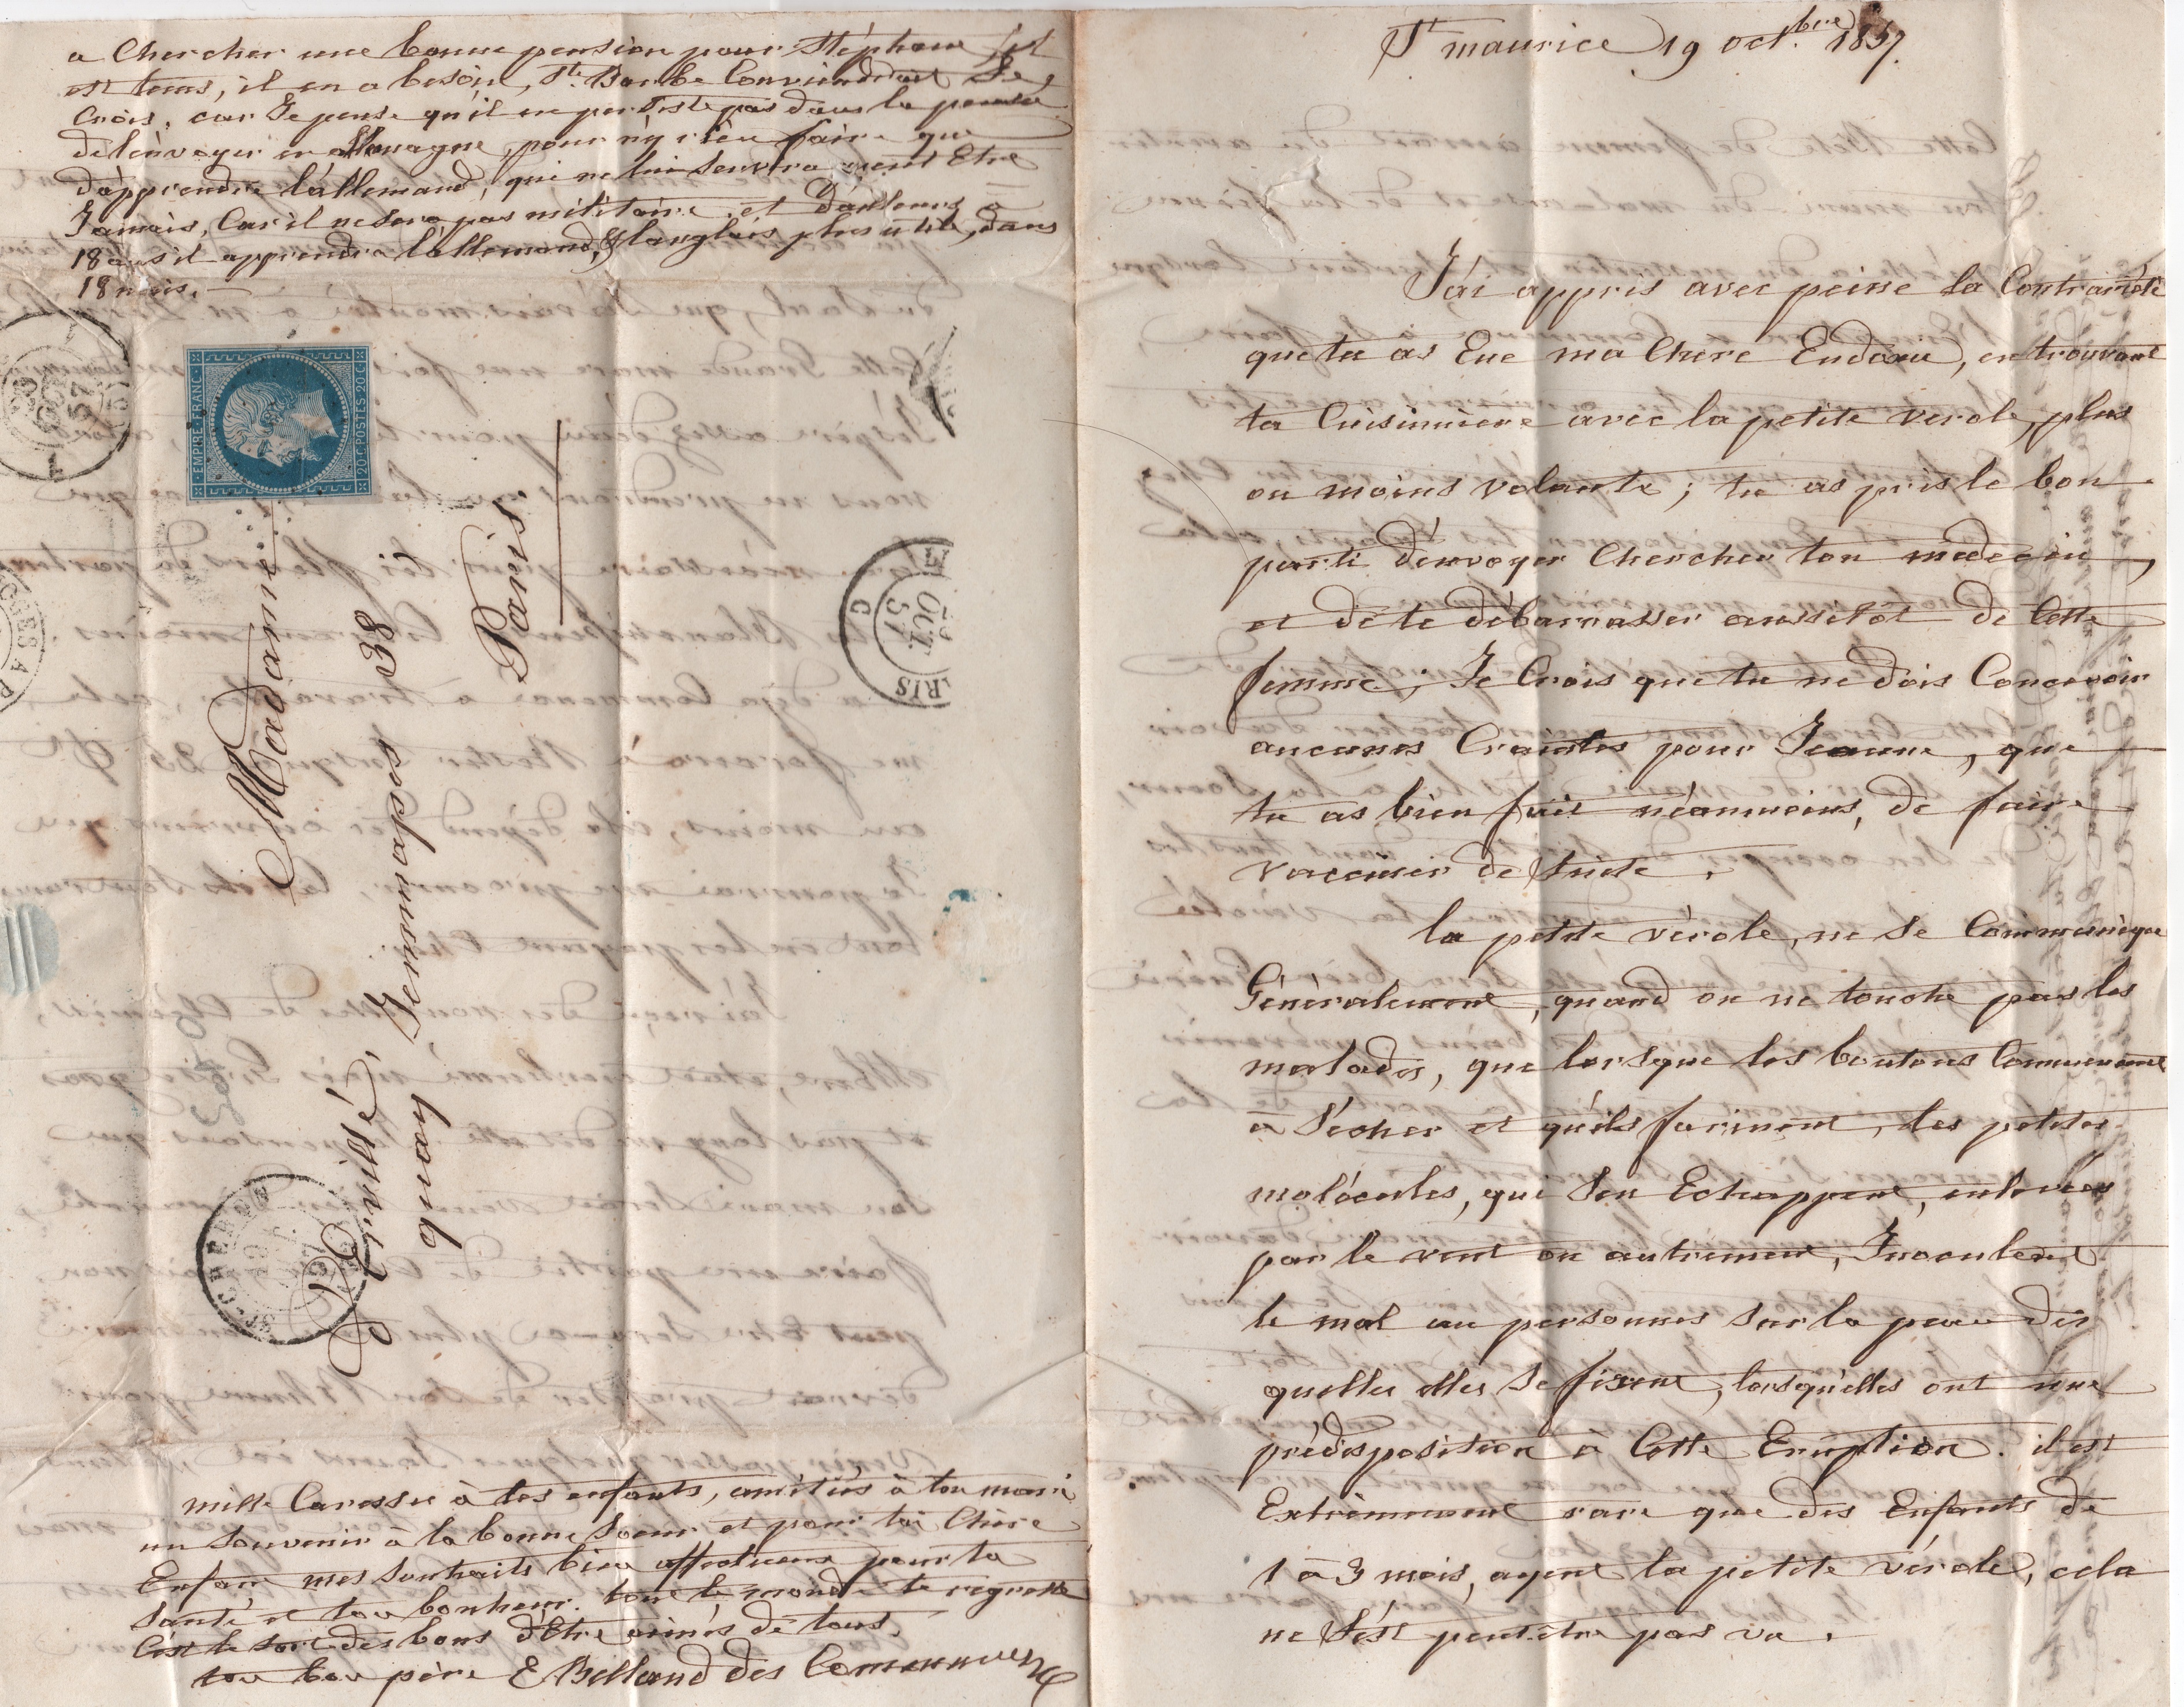 St maurice 19 octbre 1857.
J'ai appris avec peine la Contrariété
que tu as Eue ma Chere Endoxie, en trouvant
ta Cuisinniere avec la petite verole, plus
ou moins volante ; tu as pris le bon
parti d'envoyer Chercher ton medecin,
et de te débarrasser aussitôt de Cette
femme ; Je Crois que tu ne dois Concevoir
aucunes Craintes pour Jeanne, que
tu as bien fait néanmoins, de faire
vacciner de Suite.
la petite vérole, ne se Communique
Généralement, quand on ne touche pas les
malades, que lorsque les boutons Commencent
à Sécher et qu'ils farinent, les petites
molécules, qui s'en Echappent, enlevées
par le vent ou autrement, Inoculent
le mal au personnes sur la peau des
quelles elles se fixent, lorsqu'elles ont une
prédisposition à Cette Eruption. il est
Extrèmement rare que des Enfants de
1 à 3 mois, ayent la petite vérole, cela
ne s'est peut être pas vu.
a Chercher une bonne pension pour Stéphane, il
est tems, il en a besoin, Ste Barbe Conviendrait Je
Crois, car Je pense qu'il ne persiste pas dans la pensée
de l'envoyer en allemagne, pour n'y rien faire que
d'apprendre l'allemand, qui ne lui servira peut Etre
Jamais, Car il ne sera pas militaire, et D'ailleurs à
18 ans il apprendra l'allemand, & l'anglais plus utile, dans
18 mois.
EMPIRE FRANC
20 C POSTES 20 C
Madame
D. Pitié
quai Jemmapes 38
Paris
PARIS
OCT
57
mille Caresses à tes enfants, amitiés à ton mari
un souvenir à la bonne Soeur et pour toi Chère
Enfant mes souhaits bien affectueux pour ta
santé et ton bonheur. tout le monde te regrette
C'est le sort des bons d'Etre aimés de tous.
ton bon père E Belland des Communes